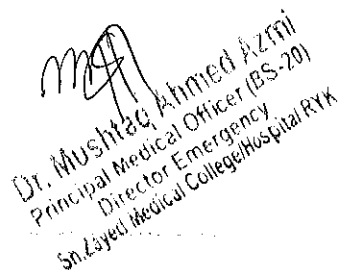 Dr. Mushtaq Ahmed Azmi
Principal Medical Officer (BS-20)
Director Emergency
Sh.Zayed Medical College/Hospital RYK